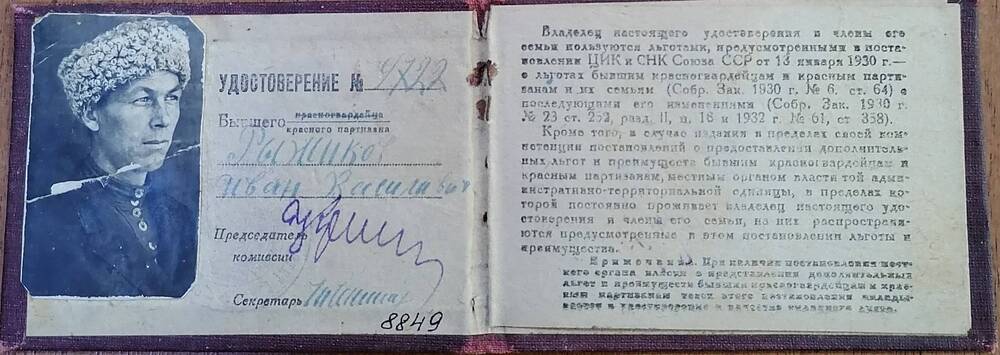 УДОСТОВЕРЕНИЕ № 4722
Бывшего красногвардейца
красного партизана
Рыжиков
Иван Василевич
Председатель
комиссии
Секретарь
8849
Владелец настоящего удостоверения и члены его
семьи пользуются льготами, предусмотренными в поста-
новлении ЦИК и СНК Союза ССР от 13 января 1930 г.—
о льготах бывшим красногвардейцам и красным парти-
занам и их семьям (Собр. Зак. 1930 г. № 6. ст. 64) с
последующими его изменениями (Собр. Зак. 1930 г.
№ 23 ст. 252, разд. II, п. 16 и 1932 г. № 61, ст. 358).
Кроме того, в случае издания в пределах своей ком-
петенции постановлений о предоставлении дополнитель-
ных льгот и преимуществ бывшим красногвардейцам и
красным партизанам, местным органом власти той адми-
нистративно-территориальной единицы, в пределах ко-
торой постоянно проживает владелец настоящего удо-
стоверения и члены его семьи, на них распространя-
ются предусмотренные в этом постановлении льготы и
преимущества.
Примечание. При наличии постановления мест-
ного органа власти о представлении дополнительных
льгот и преимуществ бывшим красногвардейцам и крас-
ным партизанам текст этого постановления